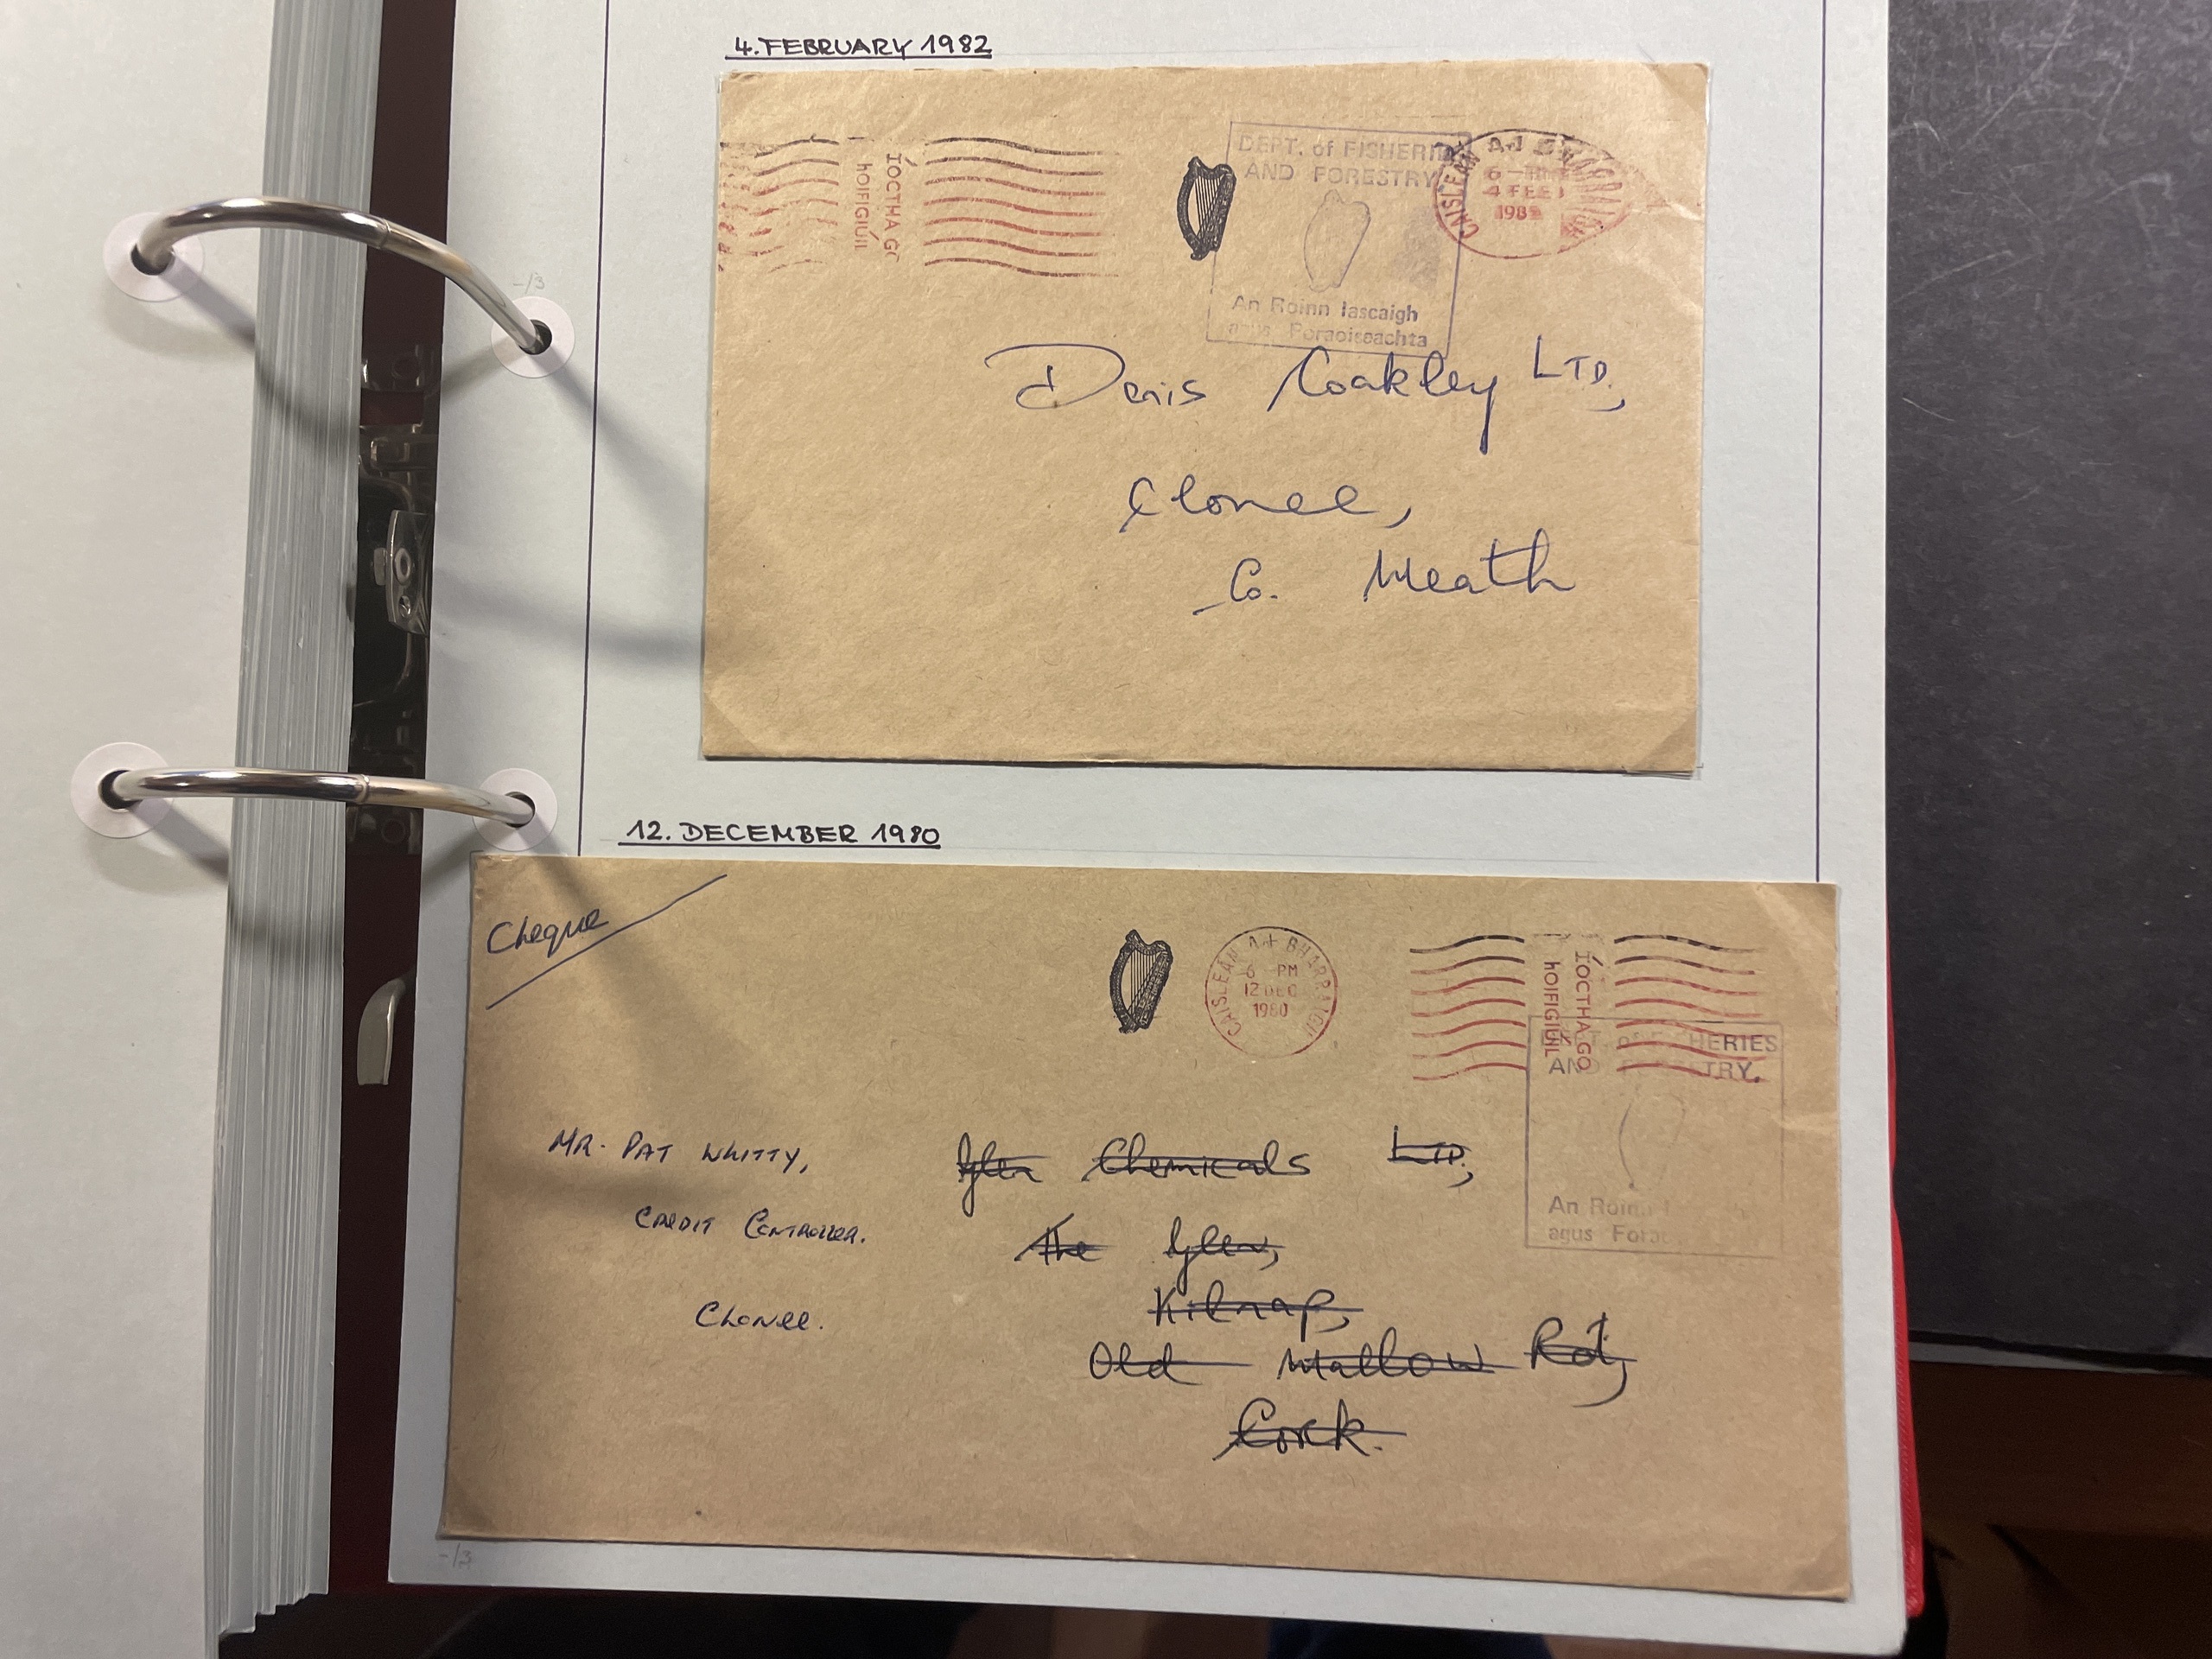 4. FEBRUARY 1982
ÍOCTHA GO
hOIFIGIÚIL
DEPT. of FISHERIE
AND FORESTRY
An Roinn Iascaigh
agus Foraoiseachta
CAISLEÁN
6
4 FEB
198
Denis Coakley LTD,
Clonee,
Co. Meath
-/3
12. DECEMBER 1980
Cheque
CAISLEÁN AN BHARRAIGH
6 PM
12 DEC
1980
ÍOCTHA GO
hOIFIGIÚIL
HERIES
AN TRY.
An Roinn
agus Fora
MR. PAT WHITTY,
CREDIT CONTROLLER.
CLONEE.
Glen Chemicals LTD,
The Glen,
Kilnap,
Old Mallow Rd,
Cork.
-/3